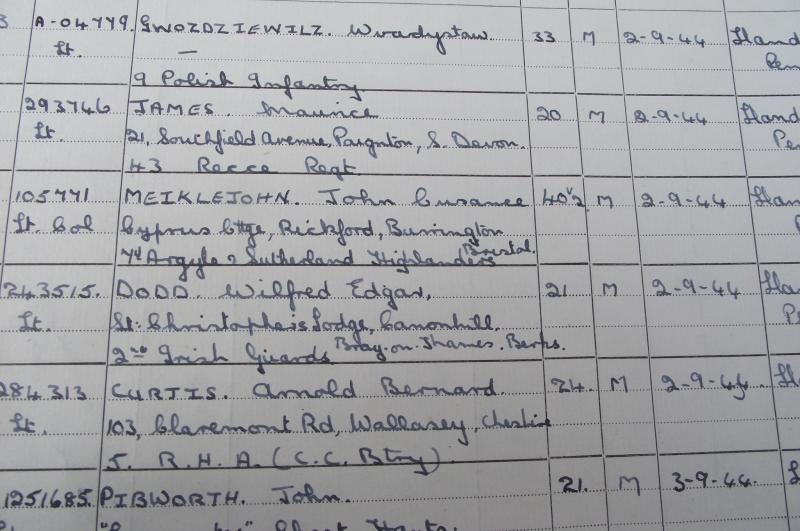 3 A-04779. GWOZDZIEWILZ. Wradystaw. 33 M 2-9-44
Lt. —
9 Polish Infantry
293746 JAMES. Maurice 20 M 2-9-44
Lt. 21, Southfield Avenue, Paignton, S. Devon.
43 Recce Regt.
105771 MEIKLEJOHN. John 40½ M 2-9-44
Lt. Col Cyprus Cttge, Rickford, Burrington
7th Argyle & Sutherland Highlanders Bristol.
243515. DODD. Wilfred Edgar, 21 M 2-9-44
Lt. St. Christopher's Lodge, Canonhill.
2nd Irish Guards Bray-on-Thames. Berks.
284313 CURTIS. Arnold Bernard. 24. M 2-9-44
Lt. 103, Claremont Rd, Wallasey, Cheshire
5. R.H.A. (C.C. Btry)
1251685. PIBWORTH. John. 21. M 3-9-44.